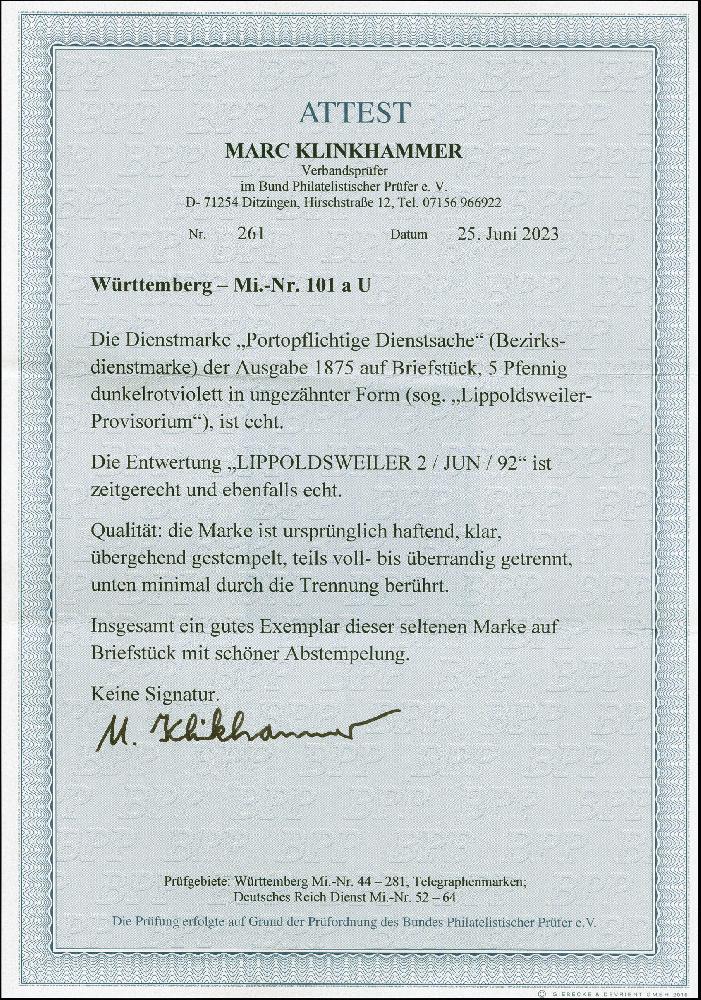 ATTEST
MARC KLINKHAMMER
Verbandsprüfer
im Bund Philatelistischer Prüfer e. V.
D- 71254 Ditzingen, Hirschstraße 12, Tel. 07156 966922
Nr. 261 Datum 25. Juni 2023
Württemberg – Mi.-Nr. 101 a U
Die Dienstmarke „Portopflichtige Dienstsache“ (Bezirks-
dienstmarke) der Ausgabe 1875 auf Briefstück, 5 Pfennig
dunkelrotviolett in ungezähnter Form (sog. „Lippoldsweiler-
Provisorium“), ist echt.
Die Entwertung „LIPPOLDSWEILER 2 / JUN / 92“ ist
zeitgerecht und ebenfalls echt.
Qualität: die Marke ist ursprünglich haftend, klar,
übergehend gestempelt, teils voll- bis überrandig getrennt,
unten minimal durch die Trennung berührt.
Insgesamt ein gutes Exemplar dieser seltenen Marke auf
Briefstück mit schöner Abstempelung.
Keine Signatur.
M. Klinkhammer
Prüfgebiete: Württemberg Mi.-Nr. 44 – 281, Telegraphenmarken;
Deutsches Reich Dienst Mi.-Nr. 52 – 64
Die Prüfung erfolgte auf Grund der Prüfordnung des Bundes Philatelistischer Prüfer e.V.
© GIESECKE & DEVRIENT GMBH